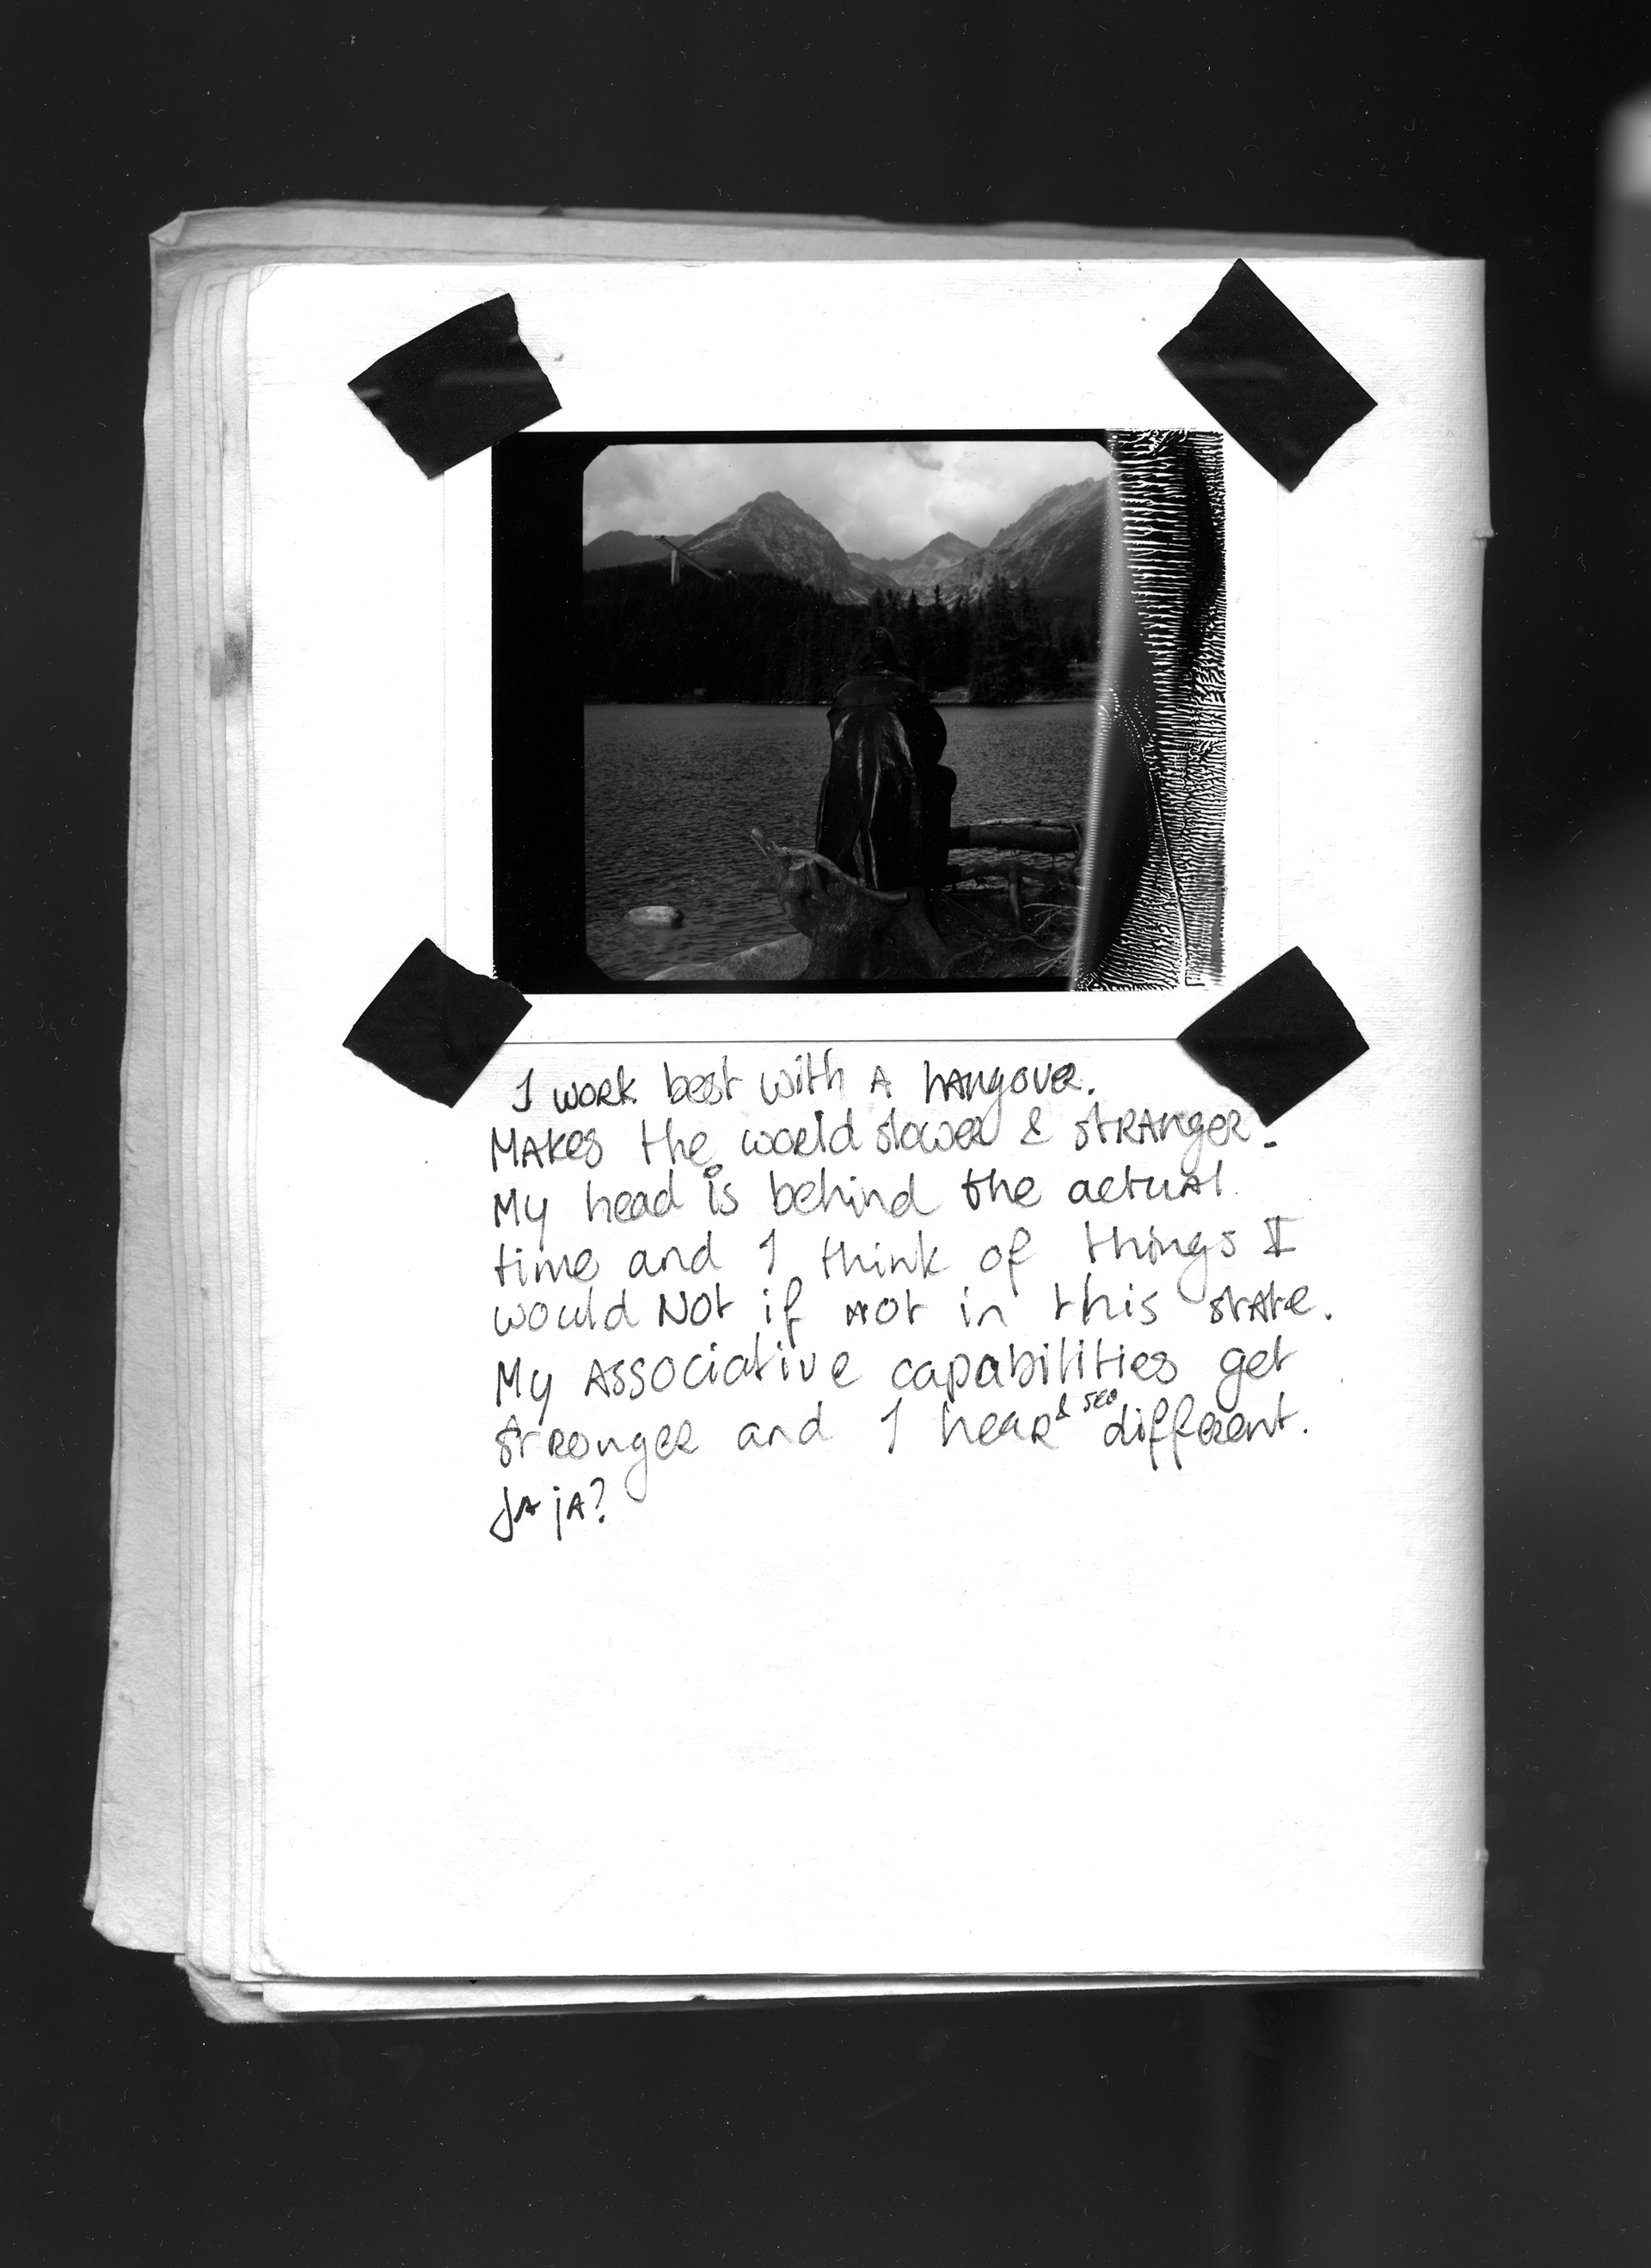 I work best with A hangover.
Makes the world slower & stranger.
My head is behind the actual
time and I think of things I
would Not if not in this state.
My Associative capabilities get
stronger and I hear & see different.
Ja ja?